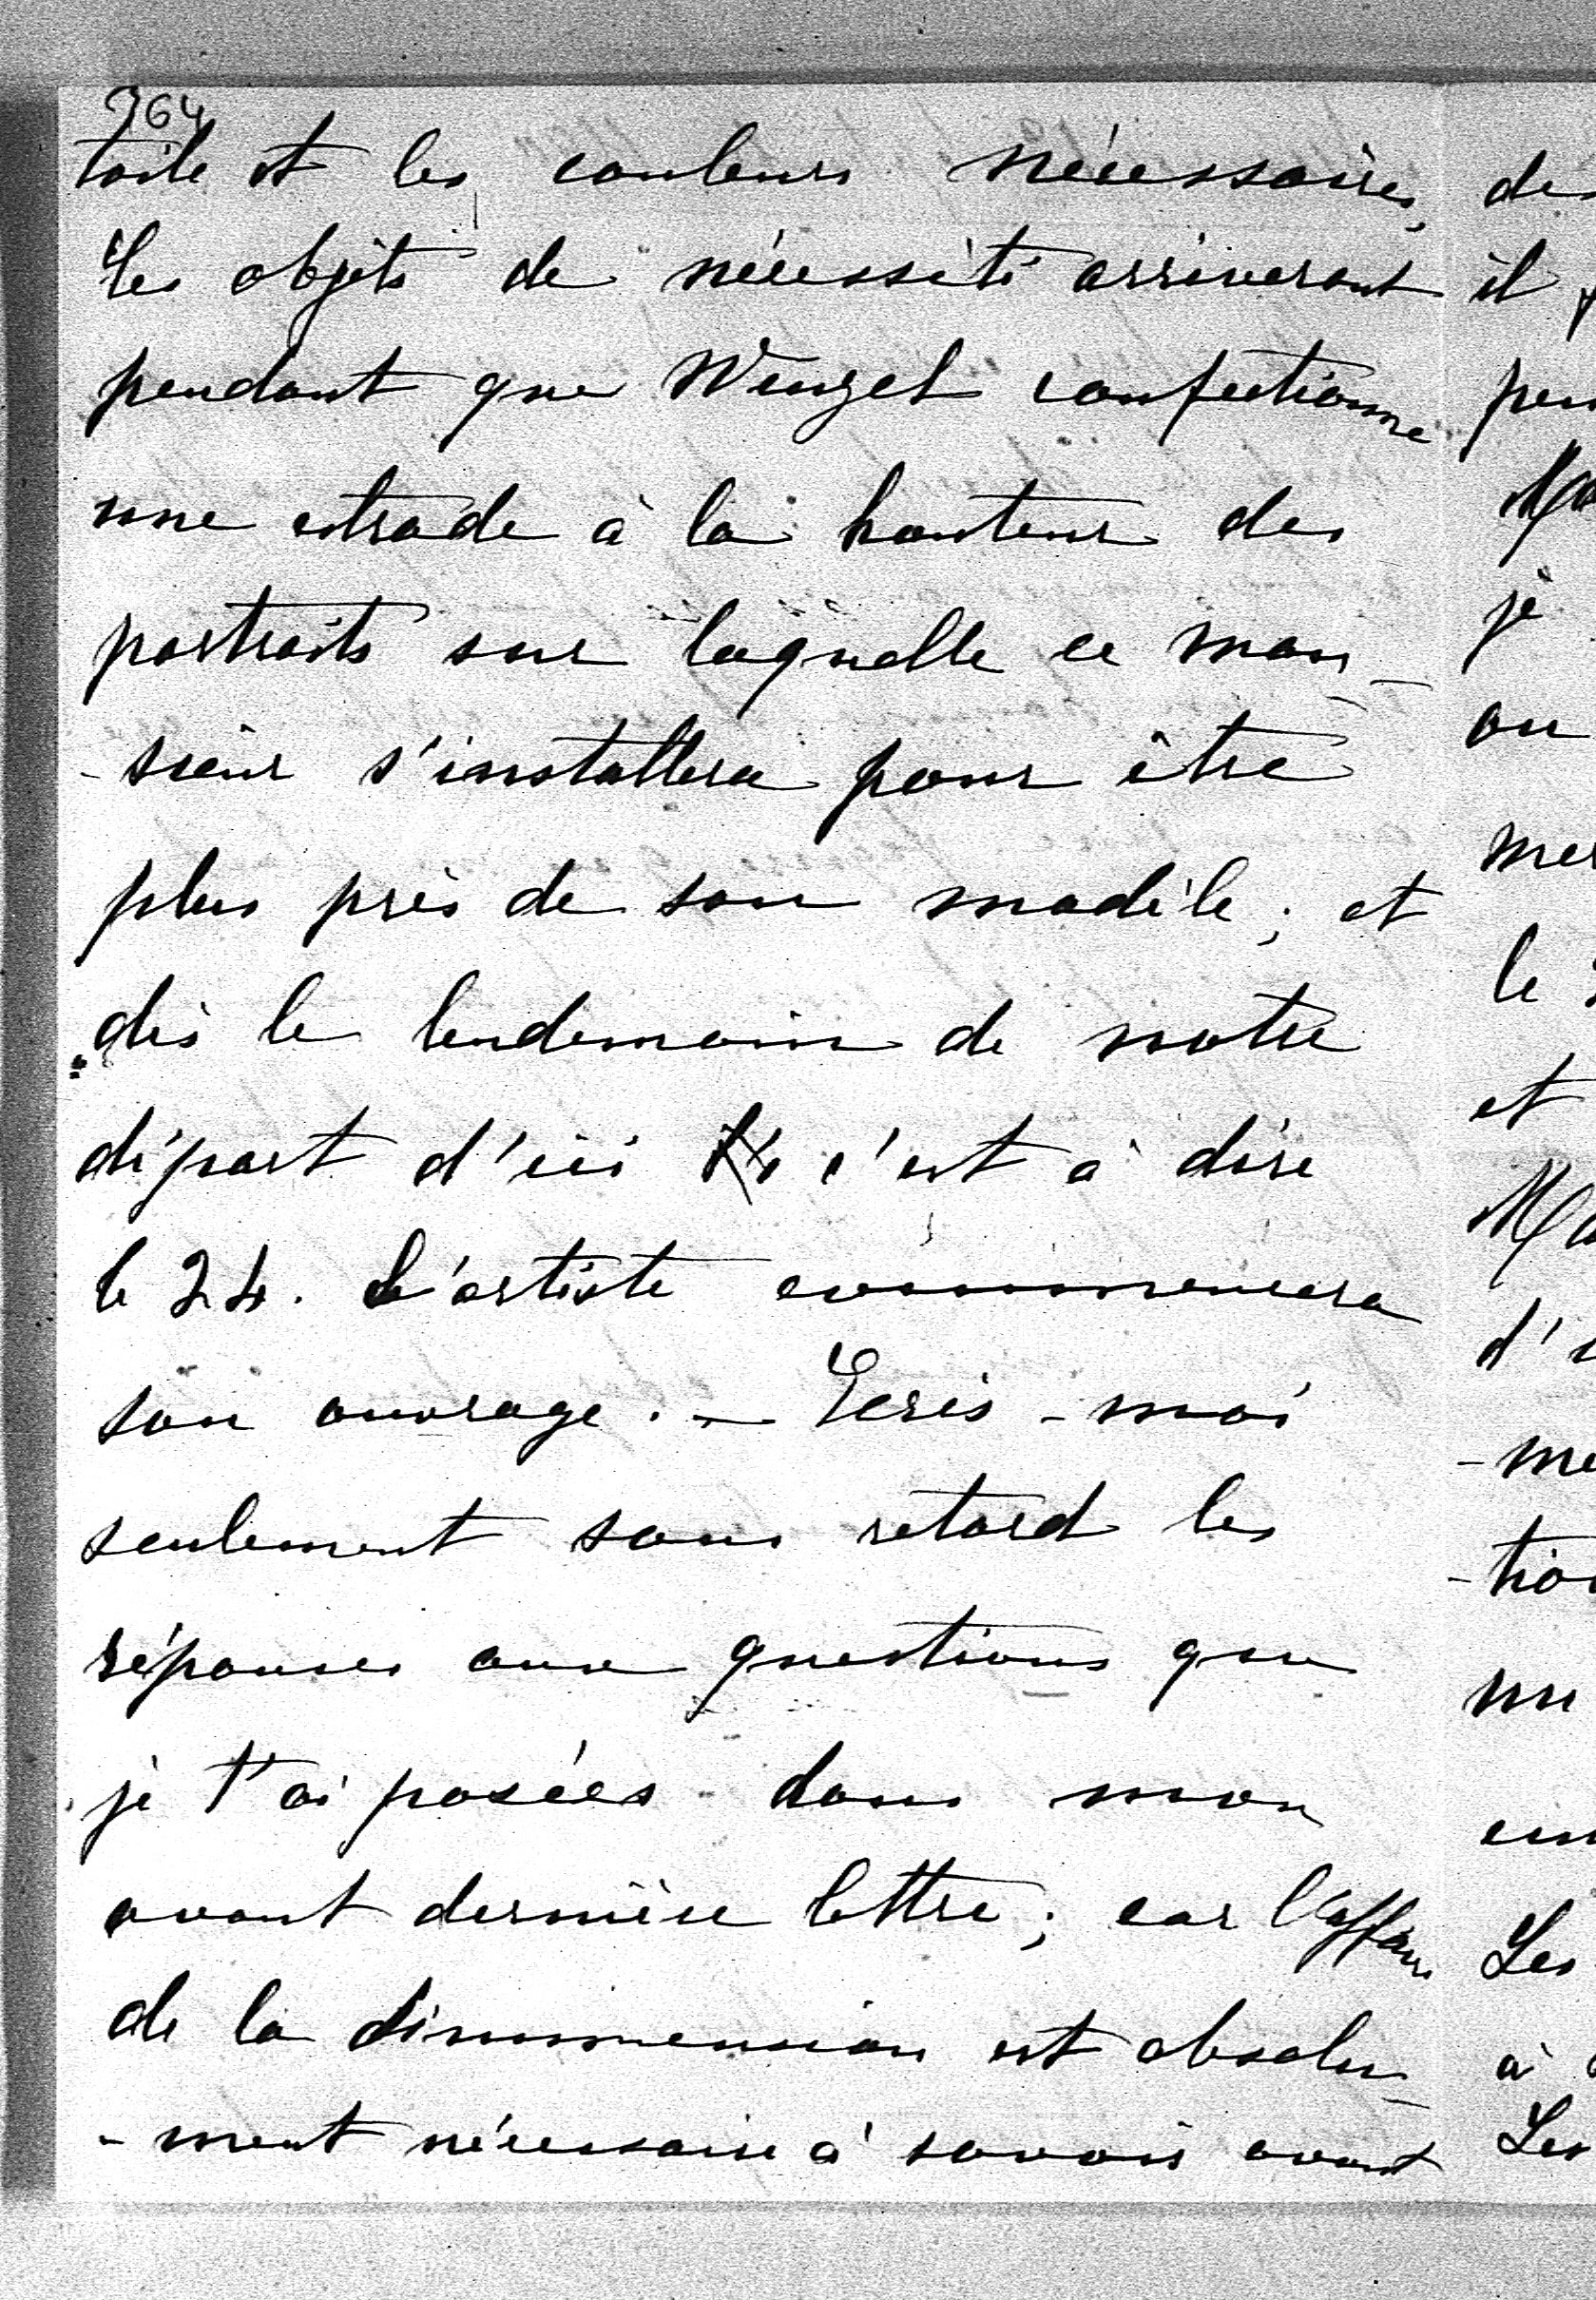 964
toile et les couleurs nécessaires,
Les objets de nécessité arriveront
pendant que Wenzel confectionne
une estrade à la hauteur des
portraits sur laquelle ce mon-
-sieur s'installera pour être
plus près de son modèle ; et
dès le lendemain de notre
départ d'ici c'est à dire
le 24. L'artiste commencera
son ouvrage. — Ecris-moi
seulement sans retard les
réponses aux questions que
je t'ai posées dans mon
avant dernière lettre ; car l'affaire
de la dimmension est absolu-
-ment nécessaire à savoir avant
il
je
ou
le
et
-me
Les
à
Les